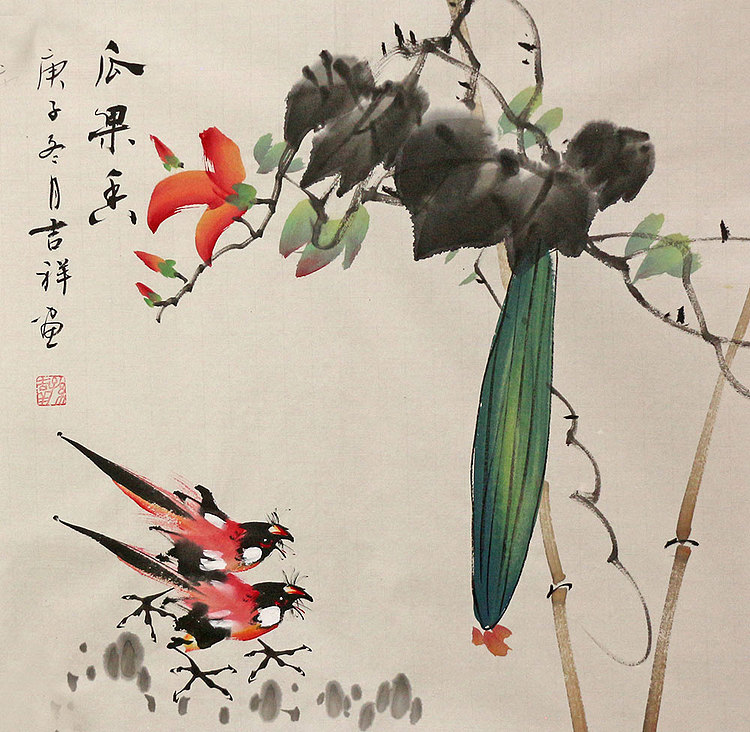 瓜果香
庚子冬月吉祥画